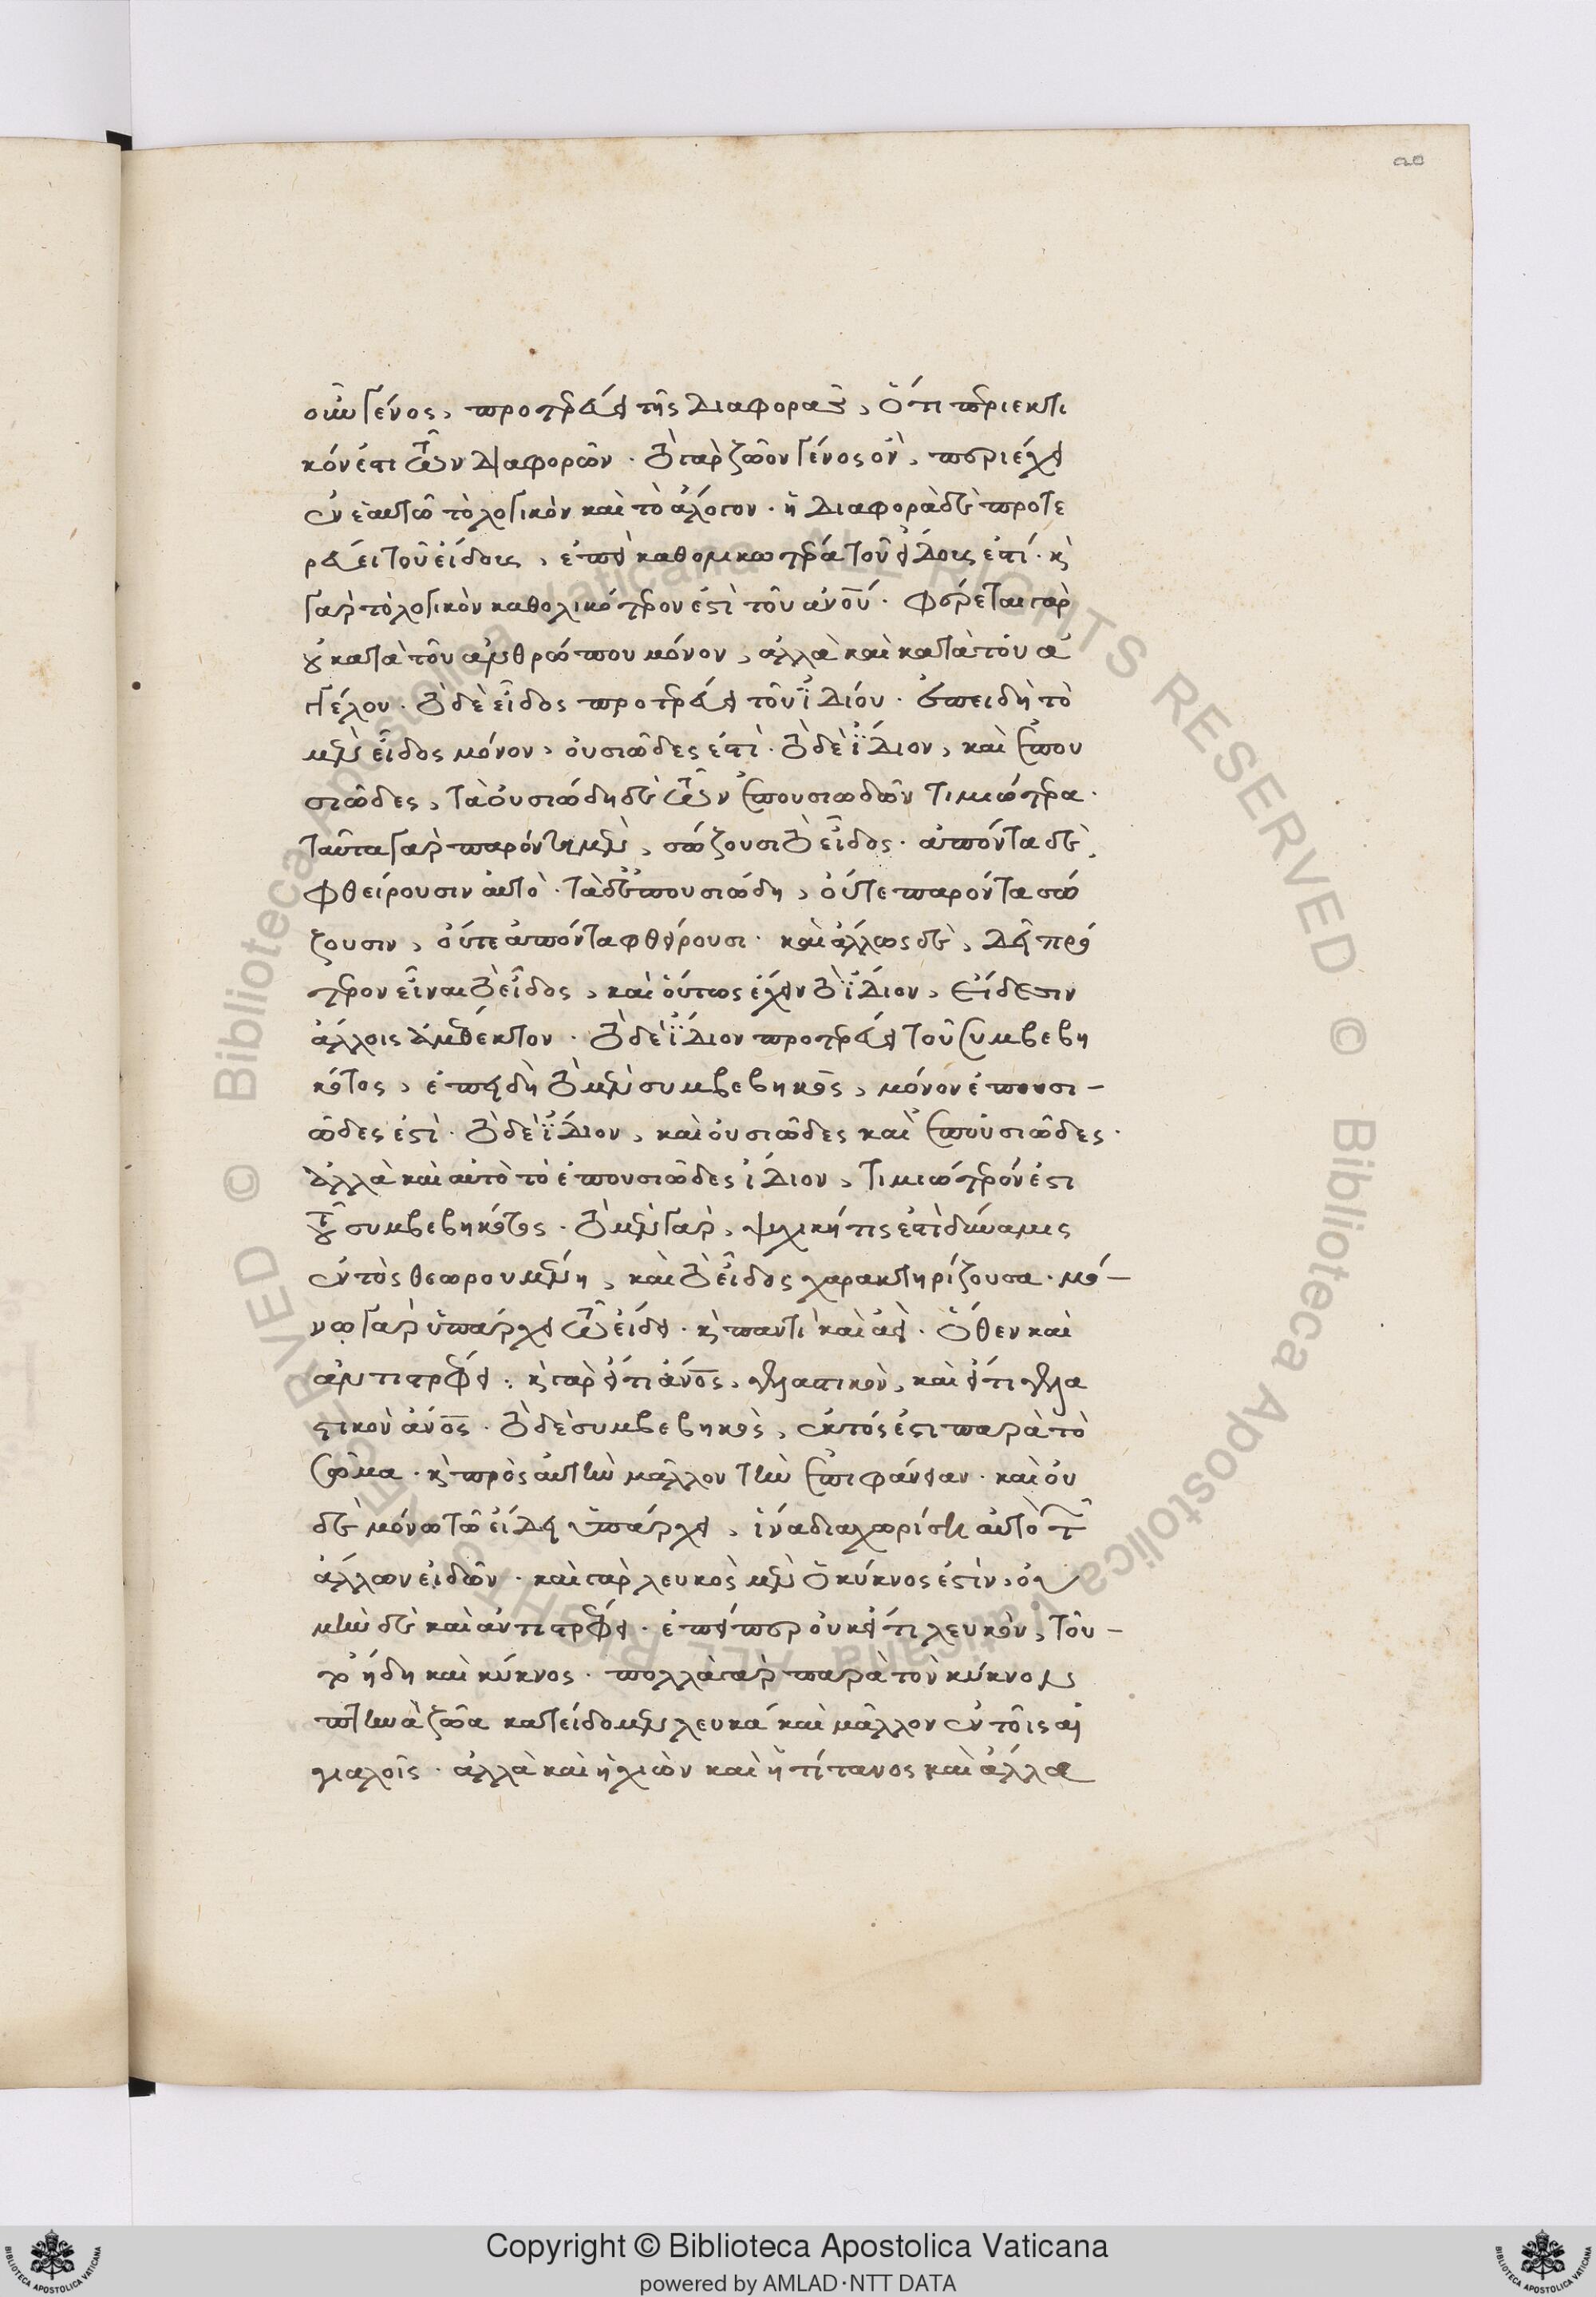 οὖν γένος, προτερεύει τῆς διαφορᾶς, ὅτι περιεκτι
κόν ἐστι τῶν διαφορῶν. τὸ γὰρ ζῶον γένος ὂν, περιέχει
ἐν ἑαυτῶ τὸ λογικὸν καὶ τὸ ἄλογον. ἡ διαφορὰ δὲ προτε
ρεύει τοῦ εἴδους, ἐπεὶ καθολικωτέρα τοῦ εἴδους ἐστί. καὶ
γὰρ τὸ λογικὸν καθολικότερον ἐστὶ τοῦ ἀνου. φέρεται γὰρ
οὐ κατὰ τοῦ ἀνθρώπου μόνον, ἀλλὰ καὶ κατὰ τοῦ ἀγ
γέλου. τὸ δὲ εἶδος προτερεύει τοῦ ἰδίου. ἐπειδὴ τὸ
μὲν εἶδος μόνον, οὐσιῶδες ἐστὶ. τὸ δὲ ἴδιον, καὶ ἐπου
σιῶδες, τὰ οὐσιώδη δὲ τῶν ἐπουσιωδῶν τιμιώτερα.
ταῦτα γὰρ παρόντα μὲν, σώζουσι τὸ εἶδος. ἀπόντα δὲ,
φθείρουσιν αὐτὸ. τὰ δὲ ἐπουσιώδη, οὔτε παρόντα σώ
ζουσιν, οὔτε ἀπόντα φθείρουσι. καὶ ἄλλως δὲ, δεῖ πρό
τερον εἶναι τὸ εἶδος, καὶ οὕτως ἔχειν τὸ ἴδιον, εἴδεσιν
ἄλλοις ἀμέθεκτον. τὸ δὲ ἴδιον προτερεύει τοῦ συμβεβη
κότος, ἐπειδὴ τὸ μὲν συμβεβηκὸς, μόνον ἐπουσι-
ῶδες ἐστὶ. τὸ δὲ ἴδιον, καὶ οὐσιῶδες καὶ ἐπουσιῶδες.
ἀλλὰ καὶ αὐτὸ τὸ ἐπουσιῶδες ἴδιον, τιμιώτερόν ἐστι
τοῦ συμβεβηκότος. τὸ μὲν γὰρ, ψυχική τις ἐστὶ δύναμις
ἐντὸς θεωρουμένη, καὶ τὸ εἶδος χαρακτηρίζουσα. μό-
νῳ γὰρ ὑπάρχει τῶ εἴδει. καὶ παντὶ καὶ ἀεὶ. ὅθεν καὶ
ἀντιστρέφει. καὶ γὰρ εἴ τι ἀνος, γελαστικὸν, καὶ εἴ τι γελα
στικὸν ἀνος. τὸ δὲ συμβεβηκὸς, ἐκτός ἐστι παρὰ τὸ
σῶμα. καὶ πρὸς αὐτὴν μᾶλλον τὴν ἐπιφάνειαν. καὶ οὐ
δὲ μόνω τῶ εἴδει ὑπάρχει, ἵνα διαχωρίση αὐτὸ τῶν
ἄλλων εἰδῶν. καὶ γὰρ λευκὸς μὲν ὁ κύκνος ἐστὶν, οὐ
μὴν δὲ καὶ ἀντιστρέφει. ἐπείπερ οὐκ εἴ τι λευκὸν, τοῦ-
το ἤδη καὶ κύκνος. πολλὰ γὰρ παρὰ τὸν κύκνον
πτηνὰ ζῶα κατείδομεν λευκά καὶ μᾶλλον ἐν τοῖς αἰ
γιαλοῖς. ἀλλὰ καὶ ἡ χιὼν καὶ ἡ τίτανος καὶ ἄλλα
Copyright © Biblioteca Apostolica Vaticana
powered by AMLAD·NTT DATA